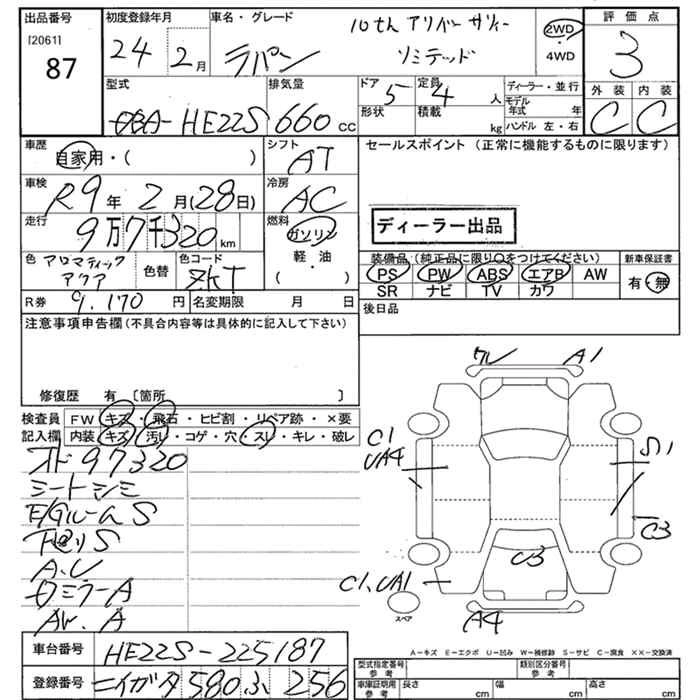 出品番号 初度登録年月 車名・グレード 評価点
[2061]
87
24年 2月
10th アニバーサリー
ラパン リミテッド
2WD
・
4WD
3
型式 排気量 ドア 5 定員 4人 ディーラー・並行 外装 内装
DBA-HE22S 660cc
形状 積載 kg モデル年式 年 ハンドル 左・右
C C
車歴 自家用・( )
シフト AT
セールスポイント (正常に機能するものに限ります)
車検 R9年 2月(28日)
冷房 AC
走行 9万7千320km
燃料 ガソリン
軽油
( )
ディーラー出品
色 アロマティックアクア 色替 色コード ZKT
装備品 (純正品に限り〇をつけてください) 新車保証書
PS PW ABS エアB AW
SR ナビ TV カワ
有・無
R券 9,170円 名変期限 月 日
後日品
注意事項申告欄 (不具合内容等は具体的に記入して下さい)
修復歴 有 〔箇所 〕
検査員 FW キズ・飛石・ヒビ割・リペア跡・×要
記入欄 内装 キズ・汚レ・コゲ・穴・スレ・キレ・破レ
97320
シートシミ
E/GルームS
S
A.U
ロミラーA
A
A1
C1
UA4
S1
C3
C3
C1,UA1
A4
スペア
A-キズ E-エクボ U-凹み W-補修跡 S-サビ C-腐食 XX-交換済
車台番号 HE22S-225187
登録番号 ニイガタ 580 ふ 256
型式指定番号 参考 類別区分番号 参考
車庫証明用 参考 長さ cm 幅 cm 高さ cm